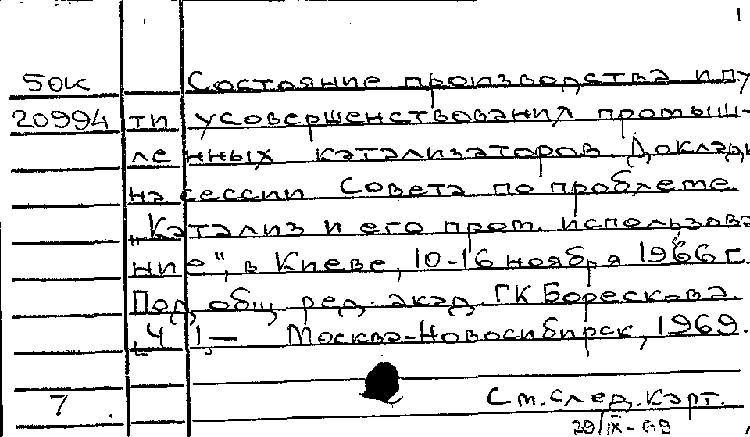 50к Состояние производства и пу
20994 ти усовершенствования промыш-
ленных катализаторов Доклады
на сессии Совета по проблеме
"Катализ и его пром. использова
ние", в Киеве, 10-16 ноября 1966 г.
Под общ. ред. акад. ГК Борескова
Ч 1,- Москва-Новосибирск, 1969.
7 См. след. карт.
29/IX-69